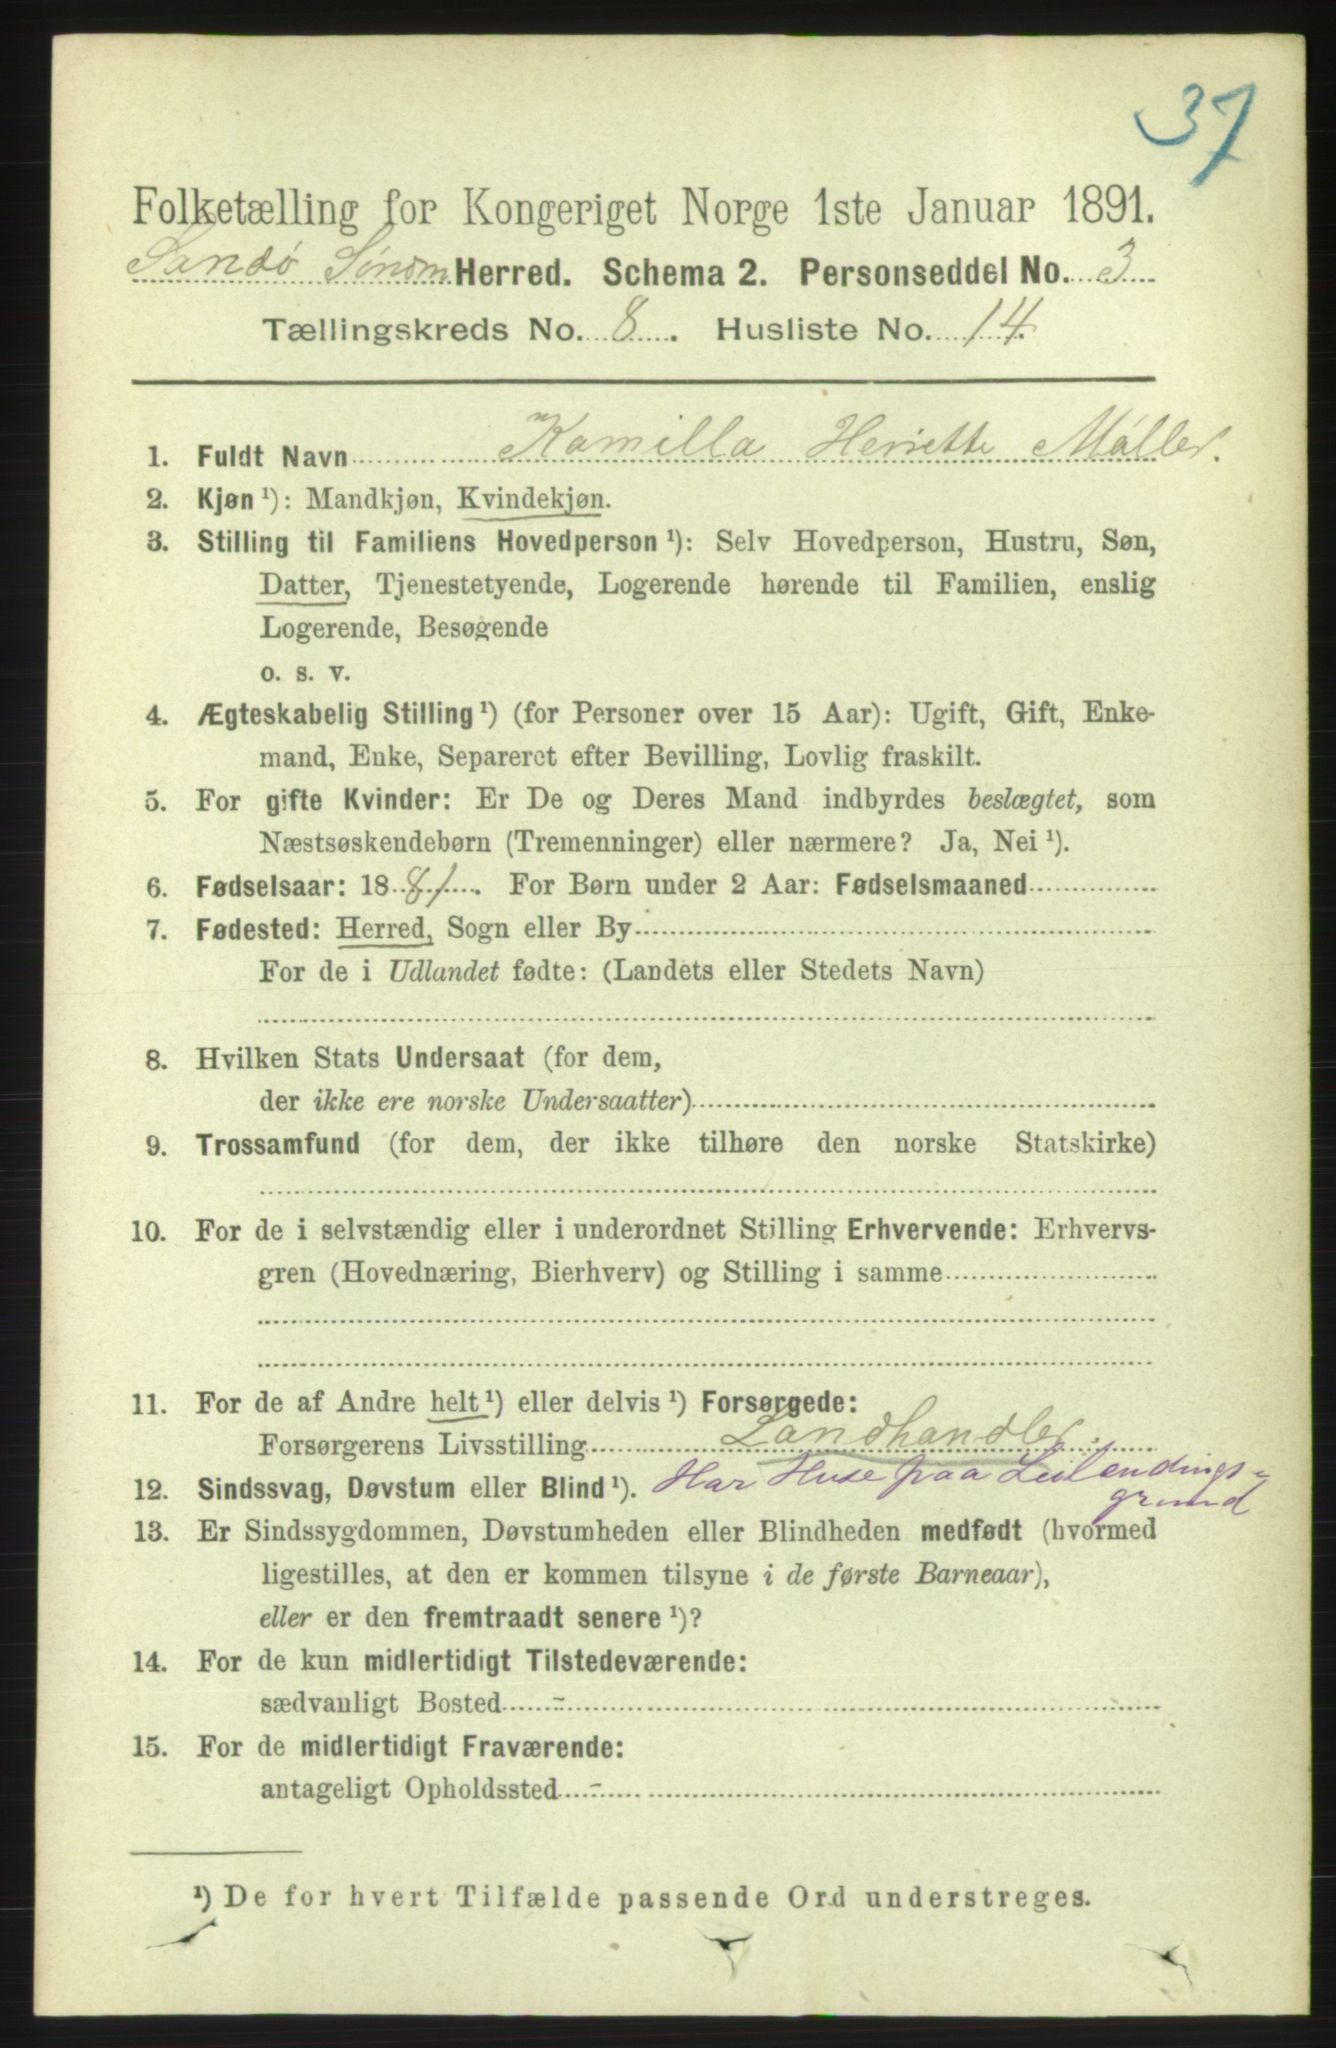 37
Folketælling for Kongeriget Norge 1ste Januar 1891.
Sandö Söndm Herred. Schema 2. Personseddel No. 3
Tællingskreds No. 8. Husliste No. 14
1. Fuldt Navn Kamilla Heriette Möller.
2. Kjøn ¹): Mandkjøn, Kvindekjøn.
3. Stilling til Familiens Hovedperson ¹): Selv Hovedperson, Hustru, Søn,
Datter, Tjenestetyende, Logerende hørende til Familien, enslig
Logerende, Besøgende
o. s. v.
4. Ægteskabelig Stilling ¹) (for Personer over 15 Aar): Ugift, Gift, Enke-
mand, Enke, Separeret efter Bevilling, Lovlig fraskilt.
5. For gifte Kvinder: Er De og Deres Mand indbyrdes beslægtet, som
Næstsøskendebørn (Tremenninger) eller nærmere? Ja, Nei ¹).
6. Fødselsaar: 1881. For Børn under 2 Aar: Fødselsmaaned
7. Fødested: Herred, Sogn eller By
For de i Udlandet fødte: (Landets eller Stedets Navn)
8. Hvilken Stats Undersaat (for dem,
der ikke ere norske Undersaatter)
9. Trossamfund (for dem, der ikke tilhøre den norske Statskirke)
10. For de i selvstændig eller i underordnet Stilling Erhvervende: Erhvervs-
gren (Hovednæring, Bierhverv) og Stilling i samme
11. For de af Andre helt ¹) eller delvis ¹) Forsørgede:
Forsørgerens Livsstilling Landhandler.
12. Sindssvag, Døvstum eller Blind ¹). Har Huse paa Leilendings-
grund
13. Er Sindssygdommen, Døvstumheden eller Blindheden medfødt (hvormed
ligestilles, at den er kommen tilsyne i de første Barneaar),
eller er den fremtraadt senere ¹)?
14. For de kun midlertidigt Tilstedeværende:
sædvanligt Bosted -
15. For de midlertidigt Fraværende:
antageligt Opholdssted -
¹) De for hvert Tilfælde passende Ord understreges.